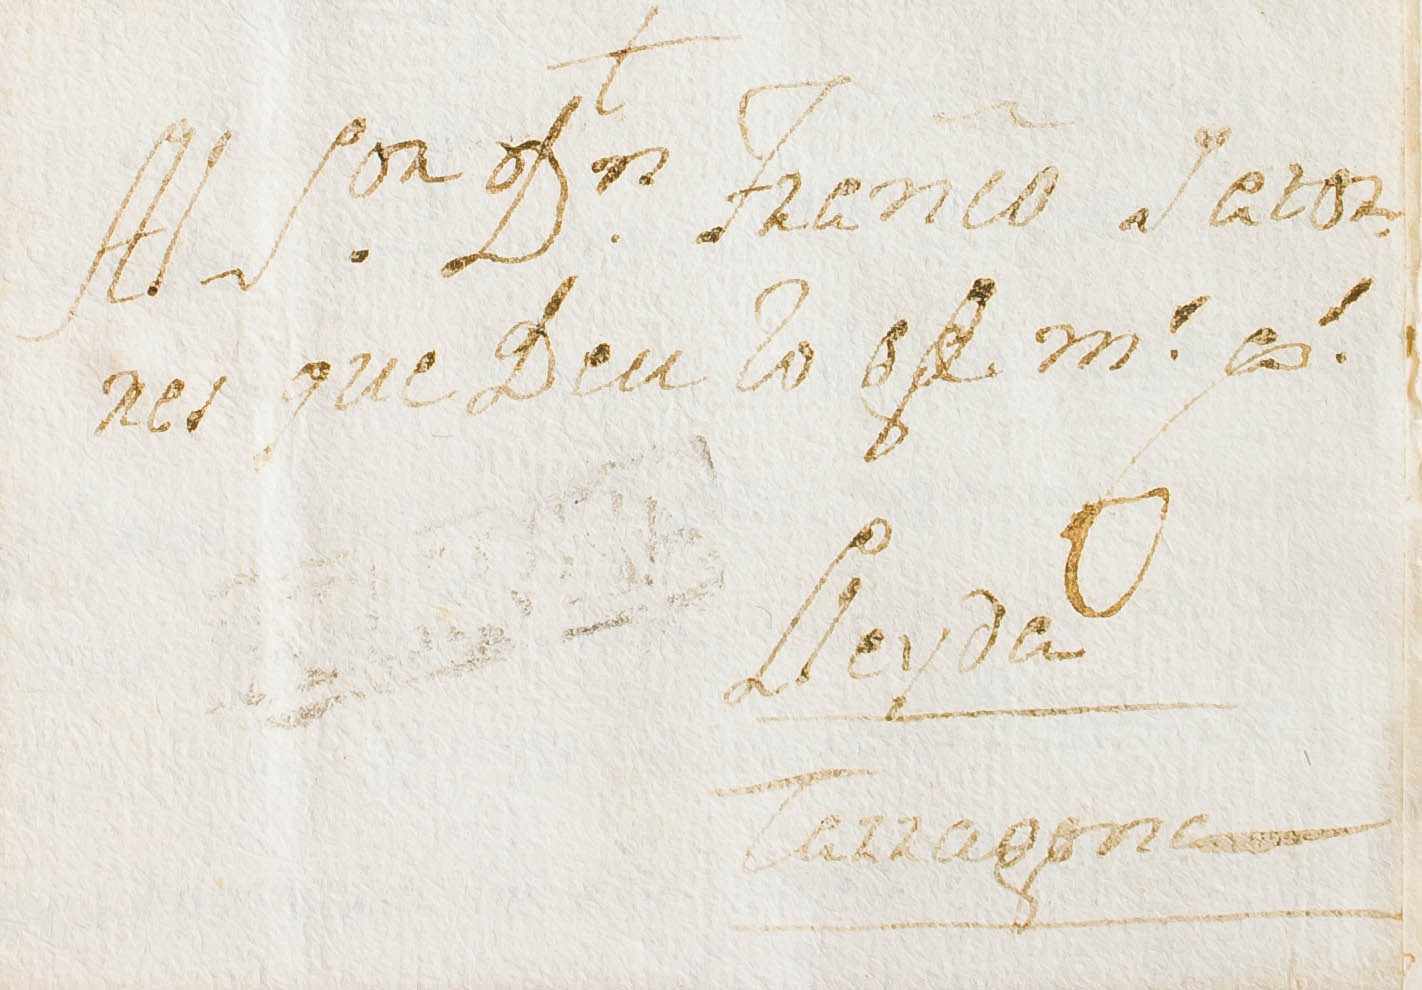 †
Al Sor Dn. Franco Jaror
nes que Deu lo gd. ms. as.
Lleyda
Tarragona